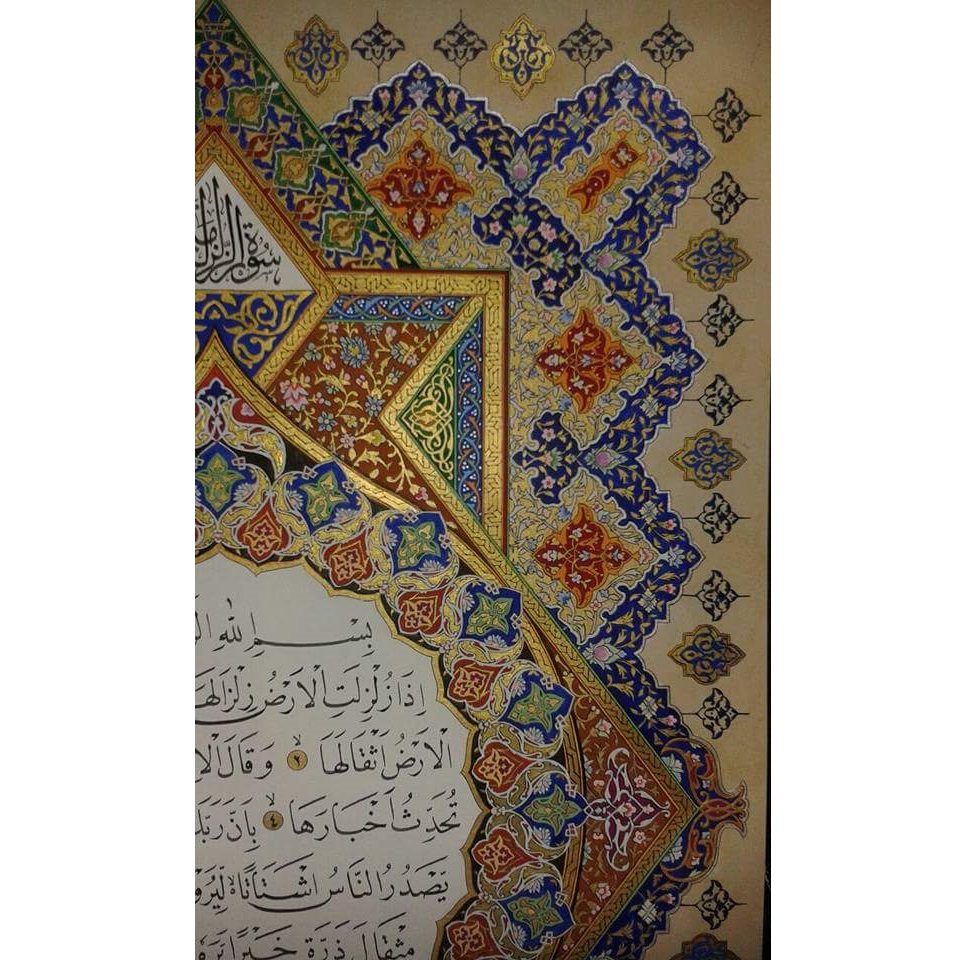 سُورَةُ الزِّلْزَا
بِسْمِ اللهِ ال
اِذَا زُلْزِلَتِ الْاَرْضُ زِلْزَالَهَا
الْاَرْضُ اَثْقَالَهَا ۙ ٢ وَقَالَ الْاِ
تُحَدِّثُ اَخْبَارَهَا ۙ ٤ بِاَنَّ رَبَّكَ
يَصْدُرُ النَّاسُ اَشْتَاتًا ۙ لِّيُرَوْ
مِثْقَالَ ذَرَّةٍ خَيْرًا يَرَهُ